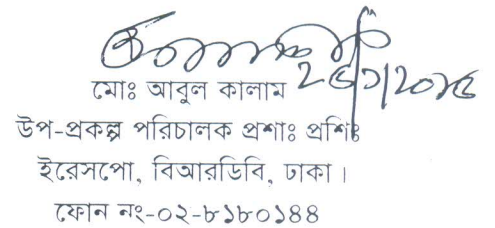 মোঃ আবুল কালাম
উপ-প্রকল্প পরিচালক প্রশাঃ প্রশিঃ
ইরেসপো, বিআরডিবি, ঢাকা।
ফোন নং-০২-৮১৮০১৪৪